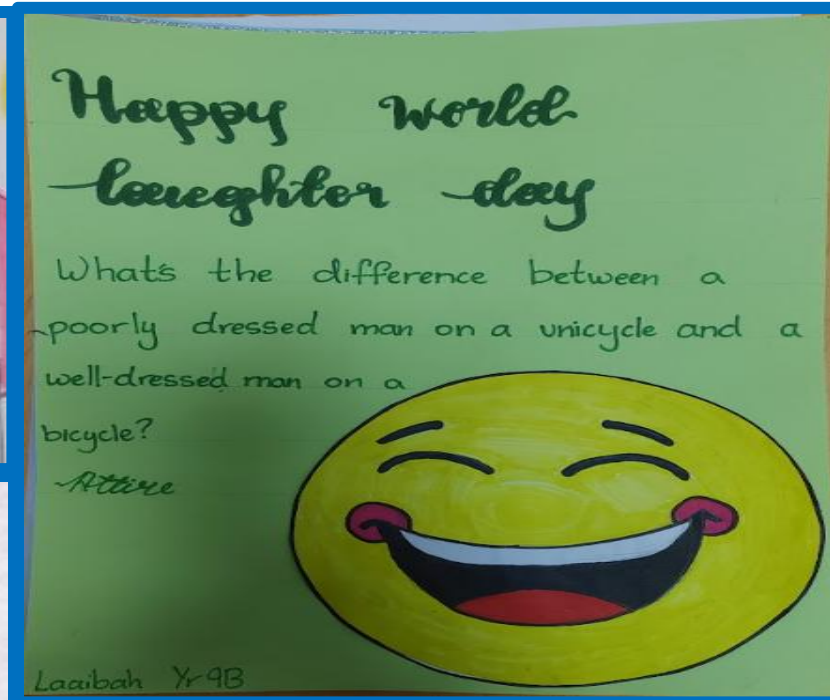 Happy world
laughter day
What's the difference between a
poorly dressed man on a unicycle and a
well-dressed man on a
bicycle?
Attire
Laaibah Yr 9B